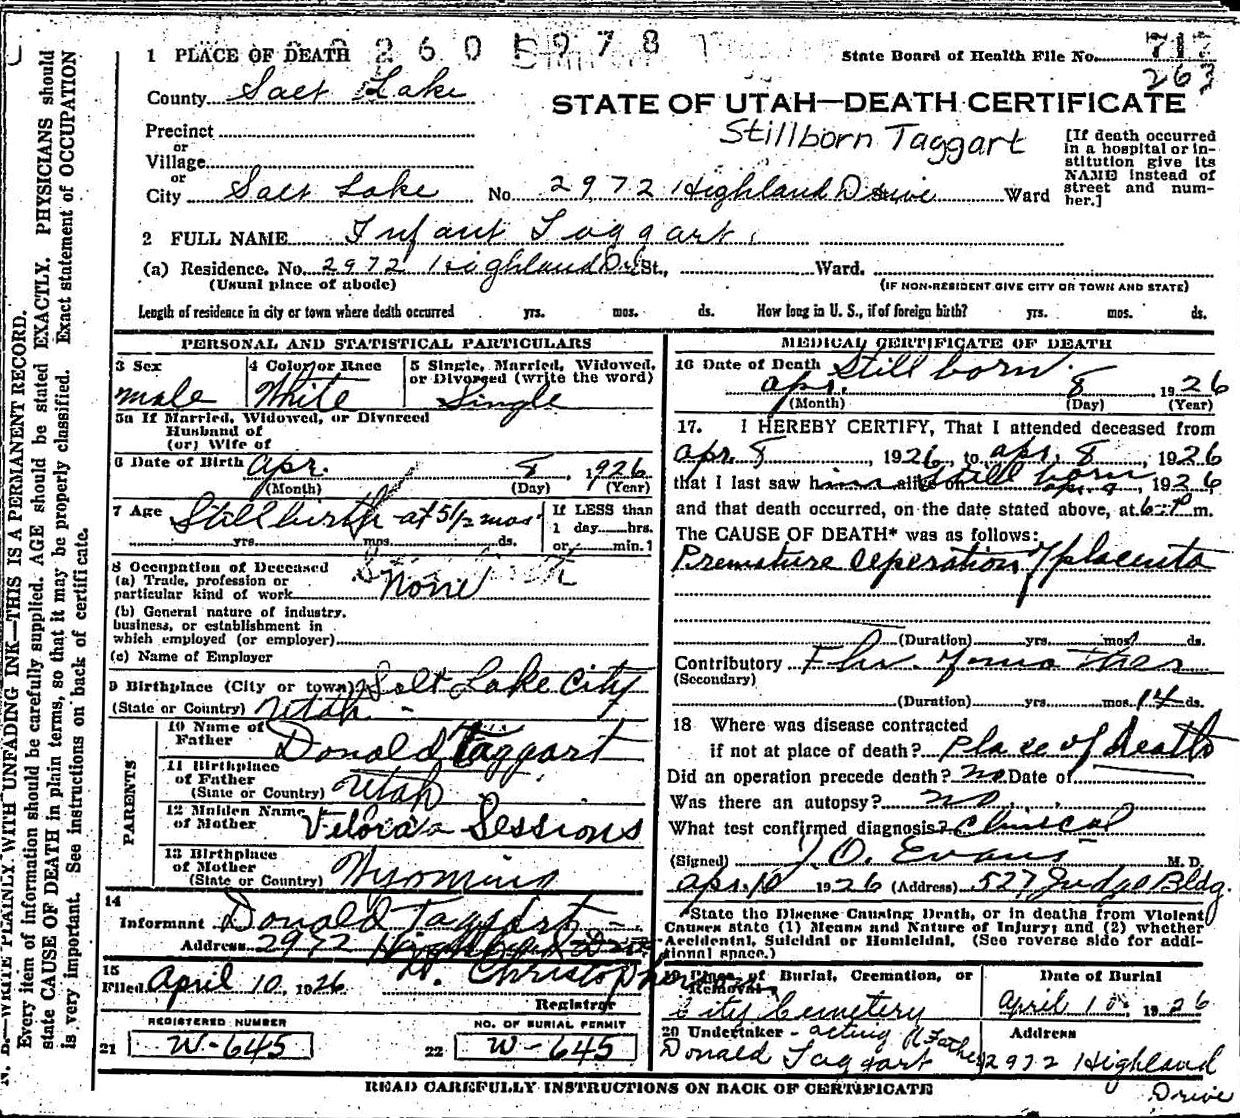 2605978
1 PLACE OF DEATH
State Board of Health File No. 717
263
County Salt Lake
STATE OF UTAH—DEATH CERTIFICATE
Stillborn Taggart
Precinct
or
Village
or
City Salt Lake No. 2972 Highland Drive Ward
[If death occurred
in a hospital or in-
stitution give its
NAME instead of
street and num-
ber.]
2 FULL NAME Infant Taggart
(a) Residence. No. 2972 Highland Dr. St., Ward.
(Usual place of abode) (IF NON-RESIDENT GIVE CITY OR TOWN AND STATE)
Length of residence in city or town where death occurred yrs. mos. ds. How long in U. S., if of foreign birth? yrs. mos. ds.
PERSONAL AND STATISTICAL PARTICULARS
3 Sex
male
4 Color or Race
White
5 Single, Married, Widowed,
or Divorced (write the word)
Single
5a If Married, Widowed, or Divorced
Husband of
(or) Wife of
6 Date of Birth Apr. 8, 1926
(Month) (Day) (Year)
7 Age Stillbirth at 5 1/2 mos.
yrs. mos. ds.
If LESS than
1 day hrs.
or min.
8 Occupation of Deceased
(a) Trade, profession or
particular kind of work None
(b) General nature of industry,
business, or establishment in
which employed (or employer)
(c) Name of Employer
9 Birthplace (City or town) Salt Lake City
(State or Country) Utah
PARENTS
10 Name of
Father Donald Taggart
11 Birthplace
of Father
(State or Country) Utah
12 Maiden Name
of Mother Sessions
13 Birthplace
of Mother
(State or Country) Wyoming
14
Informant Donald Taggart
Address 2972 Highland Drive
15
Filed April 10, 1926
Registrar
REGISTERED NUMBER
21 W-645
NO. OF BURIAL PERMIT
22 W-645
MEDICAL CERTIFICATE OF DEATH
16 Date of Death Still born.
apr. 8 1926
(Month) (Day) (Year)
17. I HEREBY CERTIFY, That I attended deceased from
apr. 8, 1926, to apr. 8, 1926
that I last saw him alive on Still born, 1926
and that death occurred, on the date stated above, at m.
The CAUSE OF DEATH* was as follows:
Premature seperation of placenta
(Duration) yrs. mos. ds.
Contributory Flu. of mother
(Secondary)
(Duration) yrs. mos. 14 ds.
18 Where was disease contracted
if not at place of death? place of death
Did an operation precede death? no Date of
Was there an autopsy? no.
What test confirmed diagnosis? Clinical
(Signed) J. O. Evans M. D.
apr. 10 1926 (Address) 527 Judge Bldg.
*State the Disease Causing Death, or in deaths from Violent
Causes state (1) Means and Nature of Injury; and (2) whether
Accidental, Suicidal or Homicidal. (See reverse side for addi-
tional space.)
19 Place of Burial, Cremation, or
Removal
City Cemetery
Date of Burial
April 10, 1926
20 Undertaker - acting
Donald Taggart
Address
2972 Highland
Drive
READ CAREFULLY INSTRUCTIONS ON BACK OF CERTIFICATE
N. B.—WRITE PLAINLY WITH UNFADING INK—THIS IS A PERMANENT RECORD.
Every item of information should be carefully supplied. AGE should be stated EXACTLY. PHYSICIANS should
state CAUSE OF DEATH in plain terms, so that it may be properly classified. Exact statement of OCCUPATION
is very important. See instructions on back of certificate.